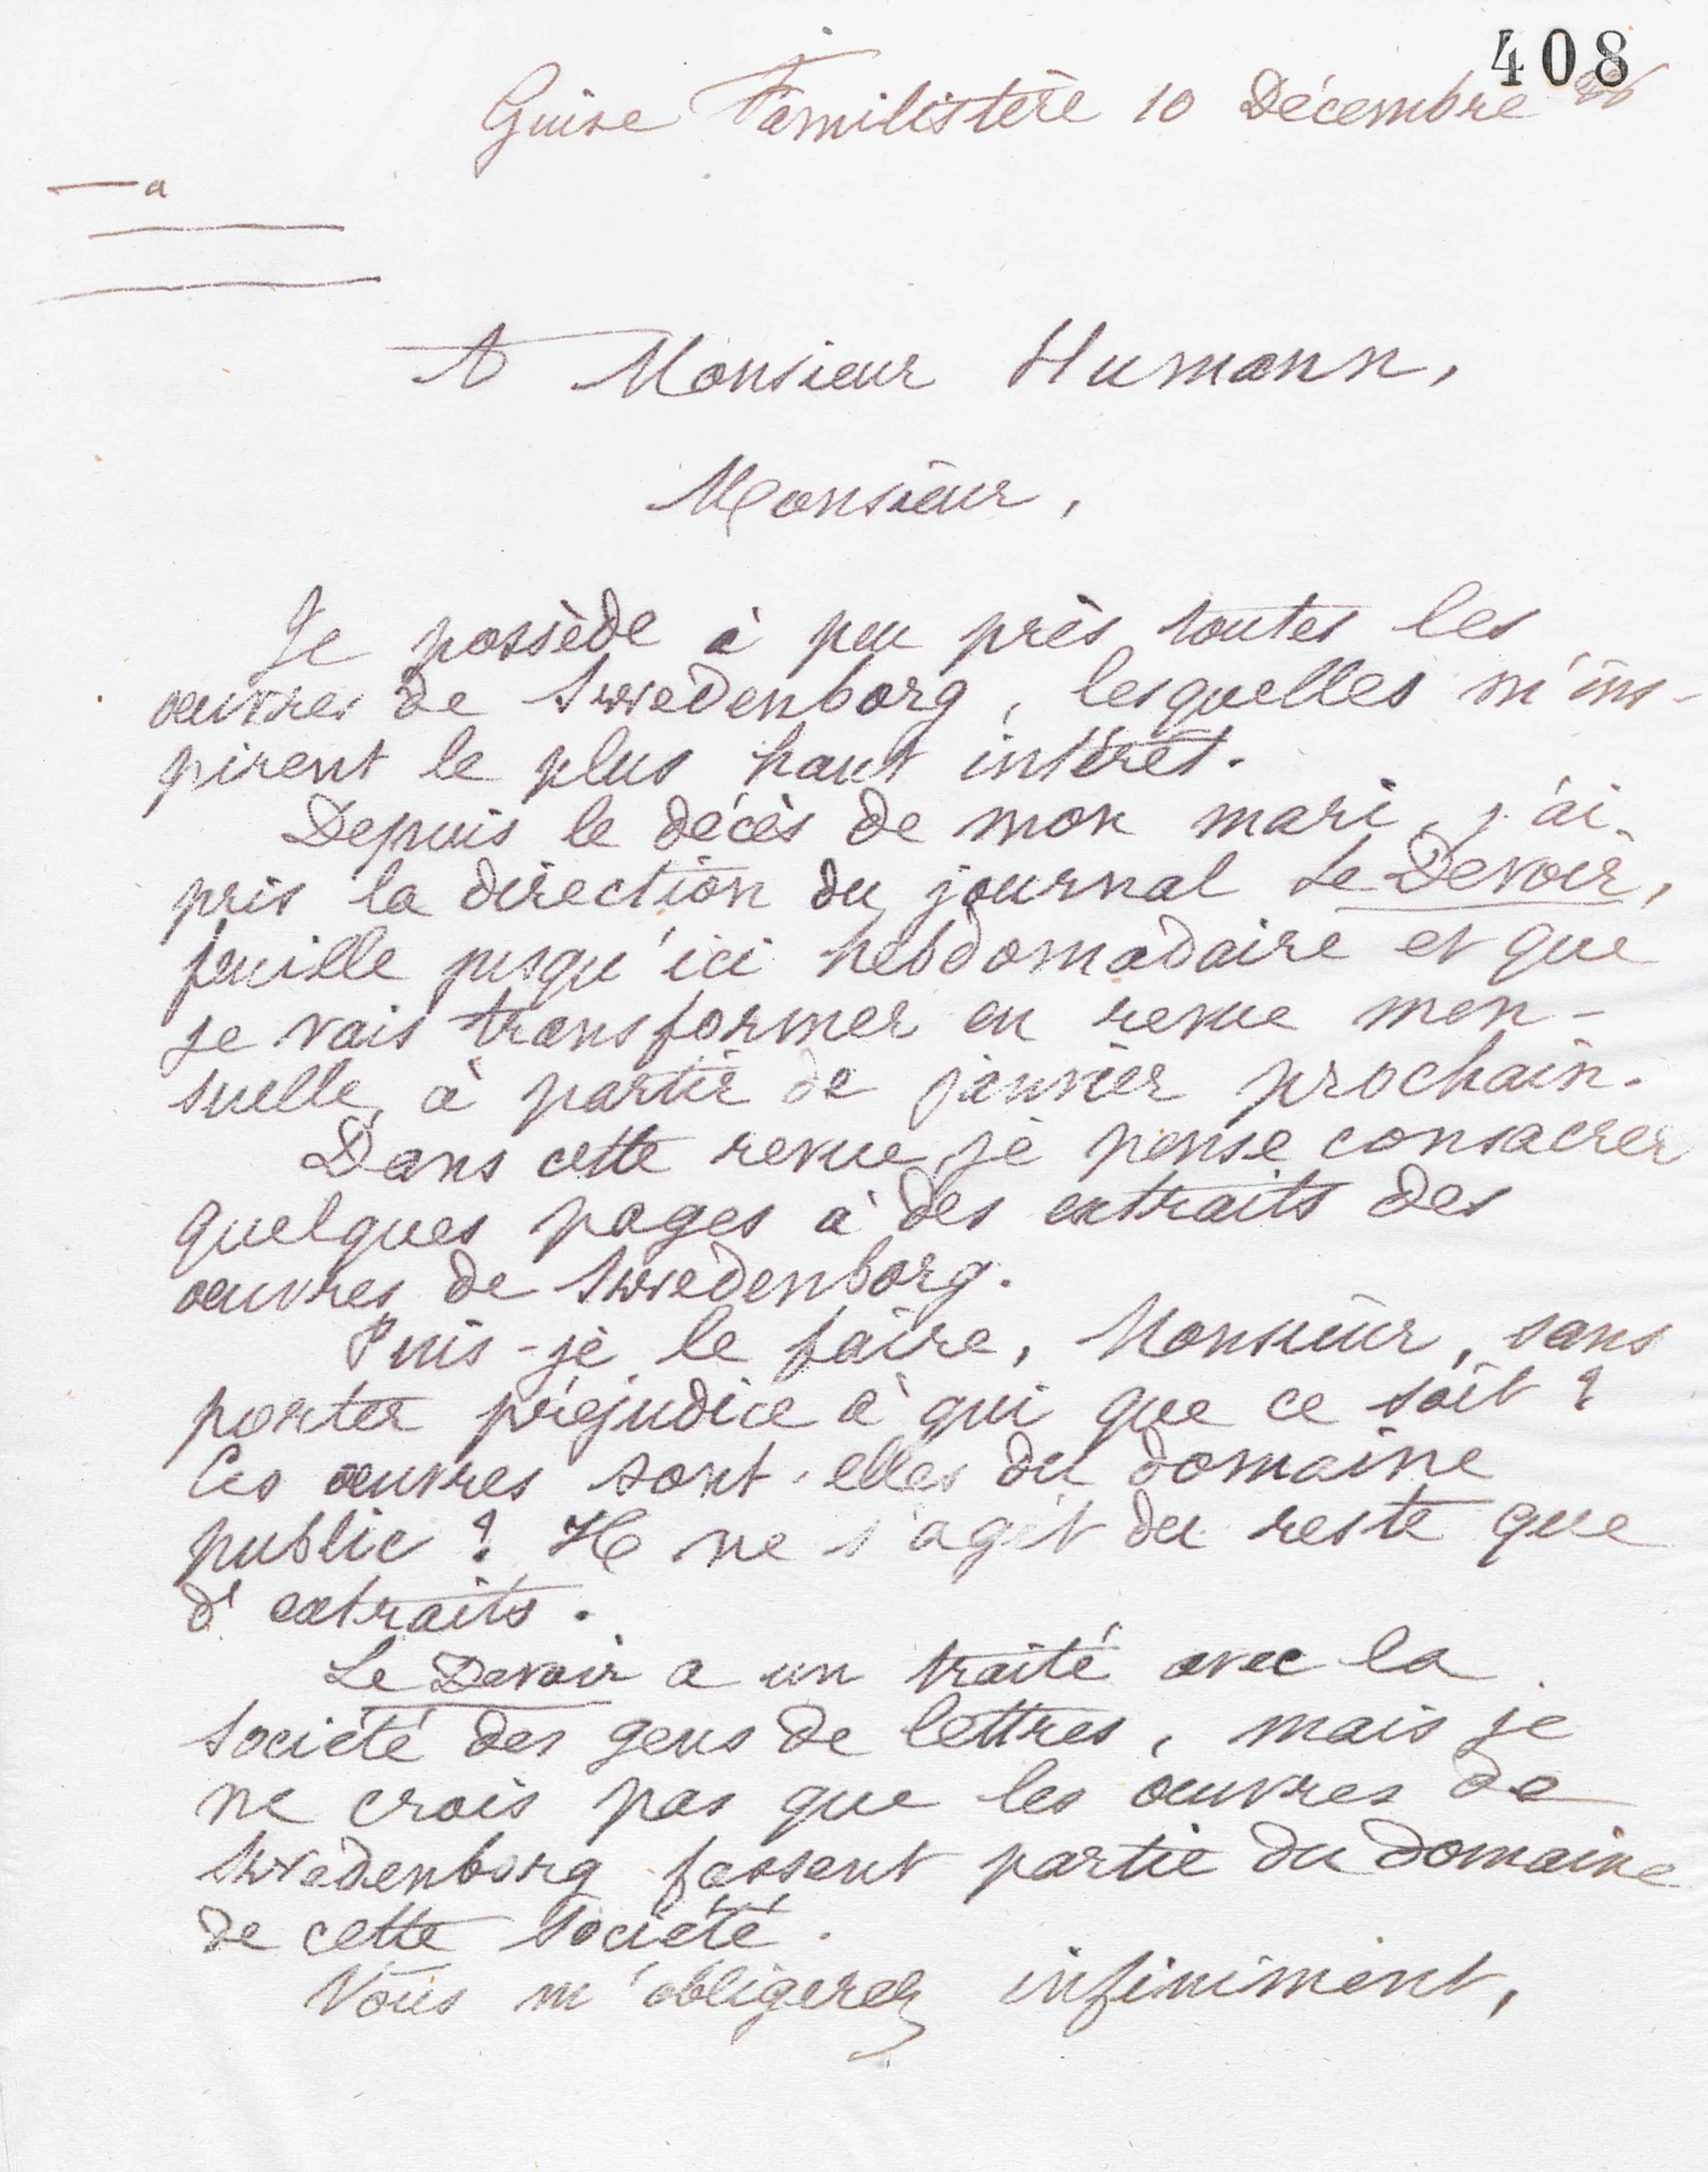 408
Guise Familistère 10 Décembre
a
A Monsieur Humann,
Monsieur,
Je possède à peu près toutes les
œuvres de Swedenborg, lesquelles m'ins-
pirent le plus haut intérêt.
Depuis le décès de mon mari, j'ai
pris la direction du journal Le Devoir,
feuille jusqu'ici hebdomadaire et que
je vais transformer en revue men-
suelle, à partir de janvier prochain.
Dans cette revue, je pense consacrer
quelques pages à des extraits des
œuvres de Swedenborg.
Puis-je le faire, Monsieur, sans
porter préjudice à qui que ce soit ?
Ces œuvres sont-elles du domaine
public ? Il ne s'agit du reste que
d'extraits.
Le Devoir a un traité avec la
société des gens de lettres, mais je
ne crois pas que les œuvres de
Swedenborg fassent partie du domaine
de cette société.
Vous m'obligerez infiniment,